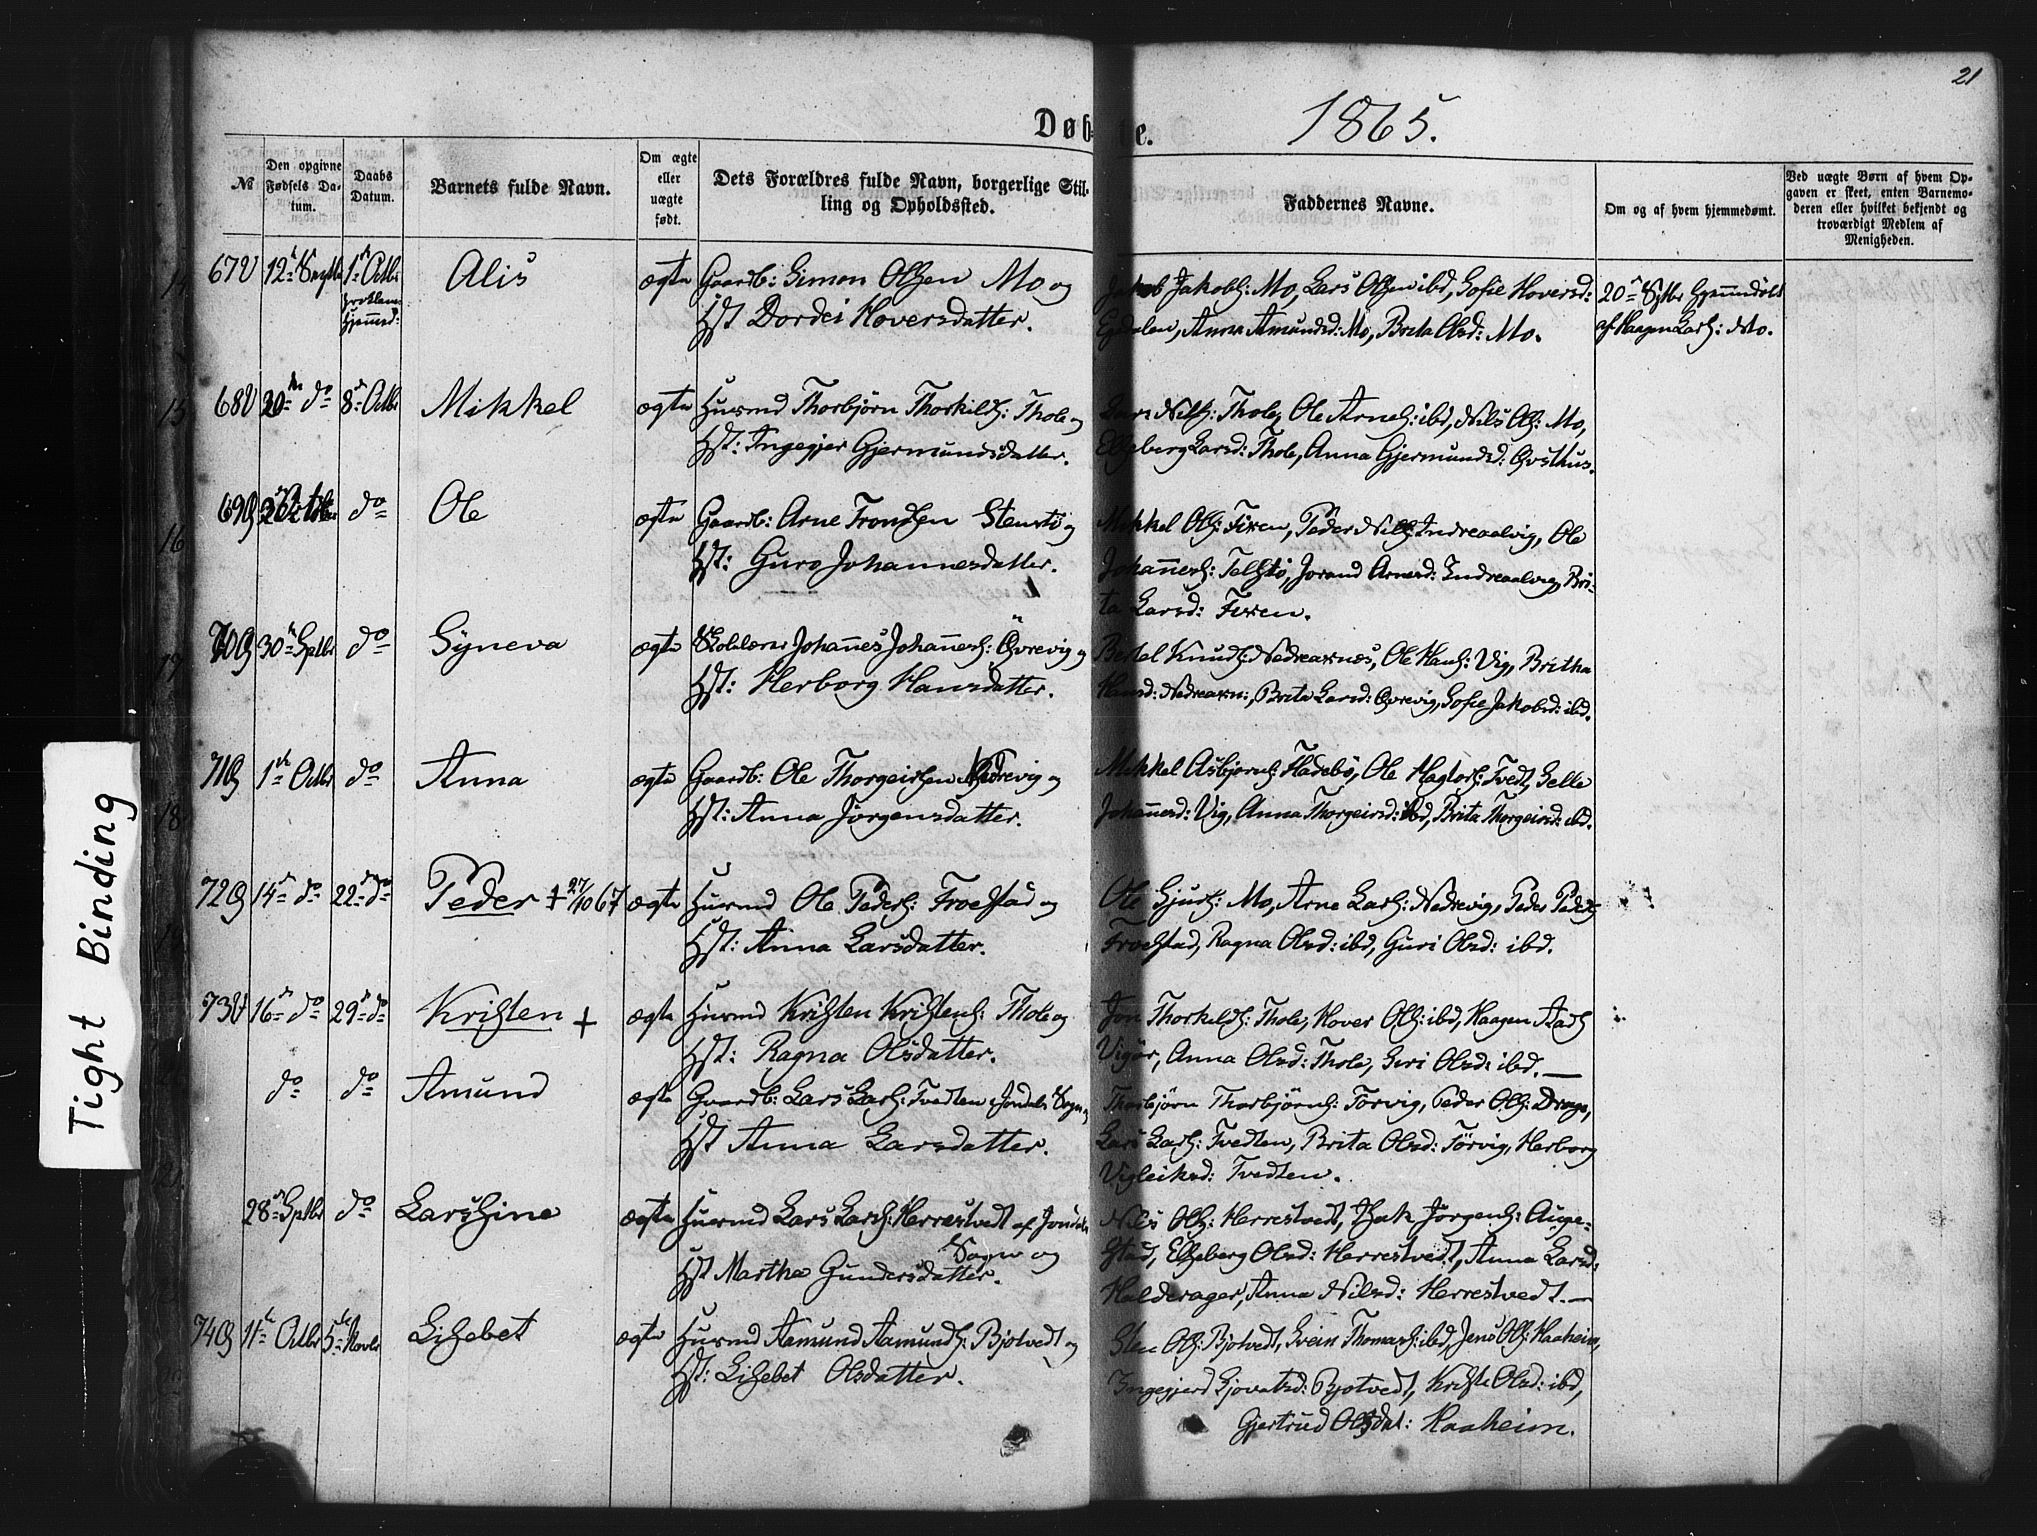 21
Døbte. 1865.
№
Den opgivne Fødsels Da-
tum.
Daabs
Datum.
Barnets fulde Navn.
Om ægte
eller
uægte
født.
Dets Forældres fulde Navn, borgerlige Stil-
ling og Opholdssted.
Faddernes Navne.
Om og af hvem hjemmedømt.
Ved uægte Børn af hvem Op-
gaven er skeet, enten Barnemo-
deren eller hvilket bekjendt og
troværdigt Medlem af
Menigheden.
67 12te Septbr 1ste Octbr Alis ægte Gaardb: Simon Olsen Mo og
Hst Dordei Hoversdatter.
Jakob Jakobs: Mo, Lars Olsen ibd, Sofie Hoversd:
Anna Amundsd: Mo, Brita Olsd: Mo.
20de Septbr
af Haagen Lars: Mo.
68 30te do 8de Octbr Mikkel ægte Husmd Thorbjørn Thorkilds: Thole og
Hst: Ingegjer Gjermundsdatter.
Lars Nils: Thole, Ole Arnes: ibd, Nils Ols: Mo,
Elseberg Larsd: Thole, Anna Gjermundsd: Qvsthus.
69 do Ole ægte Gaardb: Arne Trondsen Stenstø og
Hst: Guro Johannesdatter.
Mikkel Ols: Fixen, Peder Nils: Indreaalvig, Ole
Johannes: Telstø, Jorand Arnesd: Indreaalvig, Bri-
ta Larsd: Fixen.
70 30te Sptbr do Syneva ægte Skolelærer Johannes Johannes: Øvrevig og
Hst: Herborg Hansdatter.
Bertel Knuds: Nedreaxnes, Ole Hans: Vig, Britha
Hansd: Nedreaxn:, Brita Larsd: Øvrevig, Sofie Jakobsd: ibd.
71 1ste Octbr do Anna ægte Gaardb: Ole Thorgeirsen Nedrevig og
Hst: Anna Jørgensdatter.
Mikkel Asbjørns: Fladebø, Ole Hagtors: Tvedt, Selle
Johannesd: Vig, Anna Thorgeirsd: ibd, Brita Thorgeirsd: ibd.
72 14de do 22de do Peder + 27/10 67 ægte Husmd Ole Peders: Froestad og
Hst: Anna Larsdatter.
Ole Sjurs: Mo, Arne Lars: Nedrevig, Peder Peders:
Froestad, Ragna Olsd: ibd, Guri Olsd: ibd.
73 16de do 29de do Kristen + ægte Husmd Kristen Kristens: Thole og
Hst: Ragna Olsdatter.
Jon Thorkilds: Thole, Hover Ols: ibd, Haagen Aads:
Vigør, Anna Olsd: Thole, Siri Olsd: ibd.
do do Amund ægte Gaardb: Lars Lars: Tvedten Jondals Sogn og
Hst Anna Larsdatter.
Thorbjørn Thorbjørns: Torvig, Peder Ols: Drage,
Lars Lars: Tvedten, Brita Olsd: Tørvig, Herborg
Vigleiksd: Tvedten.
28de Sptbr do Larssine ægte Husmd Lars Lars: Herrestvedt af Jondals
Sogn og
Hst Martha Gundersdatter.
Nils Ols: Herrestvedt, Isak Jørgens: Auge-
stad, Elseberg Olsd: Herrestvedt, Anna Larsd:
Halderager, Anna Nilsd: Herrestvedt.
74 11te Octbr 5te Novbr Lisebet ægte Husmd Aamund Aamunds: Bjotvedt og
Hst: Lisebet Olsdatter.
Sten Ols: Bjotvedt, Svein Thomas: ibd, Jens Ols: Haaheim,
Ingegjerd Sjovatsd: Bjotvedt, Kriste Olsd: ibd,
Gjertrud Olsdat: Haaheim.
Tight Binding